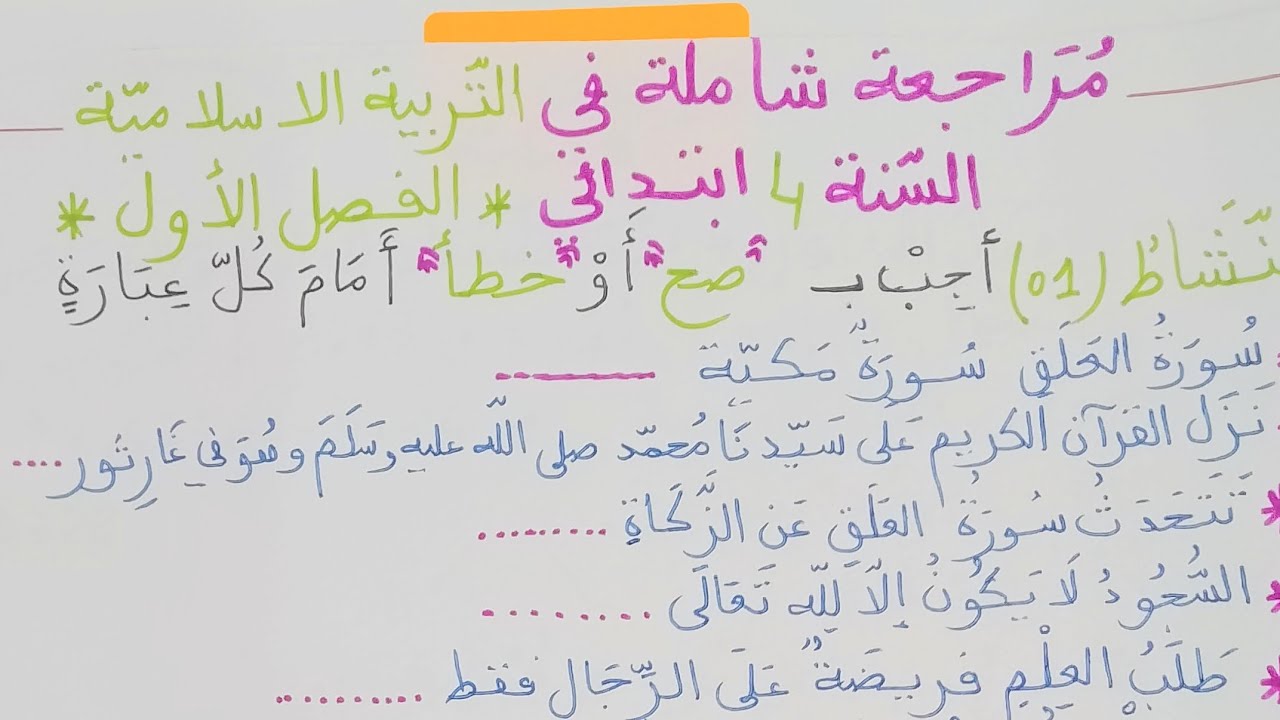 مُرَاجعة شاملة في التّربية الاسلاميّة
السّنة 4 ابتدائي * الفصل الأول *
نّشَاطُ (01) أَجِبْ بـ "صح" أَوْ "خطأ" أَمَامَ كُلّ عِبَارَةٍ
سُورَةُ العَلَقِ سُورَةٌ مَكيّة ........
نَزَلَ القرآن الكريم عَلَى سَيّدنَا مُحمّد صلى اللّه عليه وسَلَمَ وهُوَ في غَارِ ثَور ....
* تَتَحَدَثُ سُورَةُ العَلَقِ عَن الزَّكَاةِ .........
* السُّجُودُ لَا يَكُونُ إِلاّ لِلّه تَعَالَى ........
* طَلَبُ العِلْمِ فريضَةٌ عَلَى الرِّجَال فقط ..........